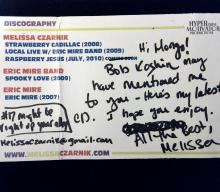 DISCOGRAPHY
HYPER MOTIVATOR
MELISSA CZARNIK
STRAWBERRY CADILLAC (2008)
LIVE W/ ERIC MIRE BAND (2009)
RASPBERRY JESUS (JULY, 2010)
ERIC MIRE BAND
SPOOKY LOVE (2009)
ERIC MIRE
ERIC MIRE (2007)
#17 might be
right up your alley
Melissaczarnik@gmail.com
WWW.MELISSACZARNIK.COM
Hi, Mongo!
Bob Koshin may
have mentioned me
to you - Here's my latest
CD. I hope you enjoy.
All the best,
Melissa